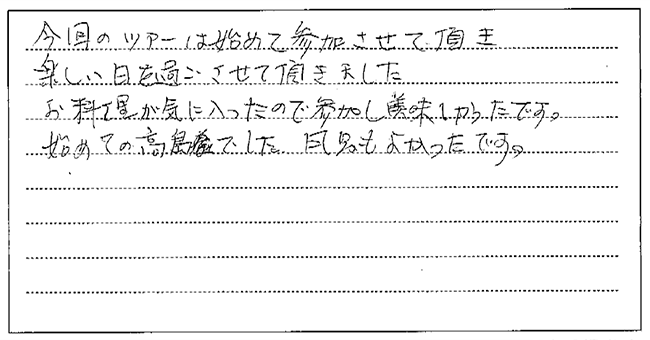 今回のツアーは始めて参加させて頂き
楽しい日を過ごさせて頂きました
お料理が気に入ったので参加し美味しかったです。
始めての高島屋でした 風呂もよかったです。